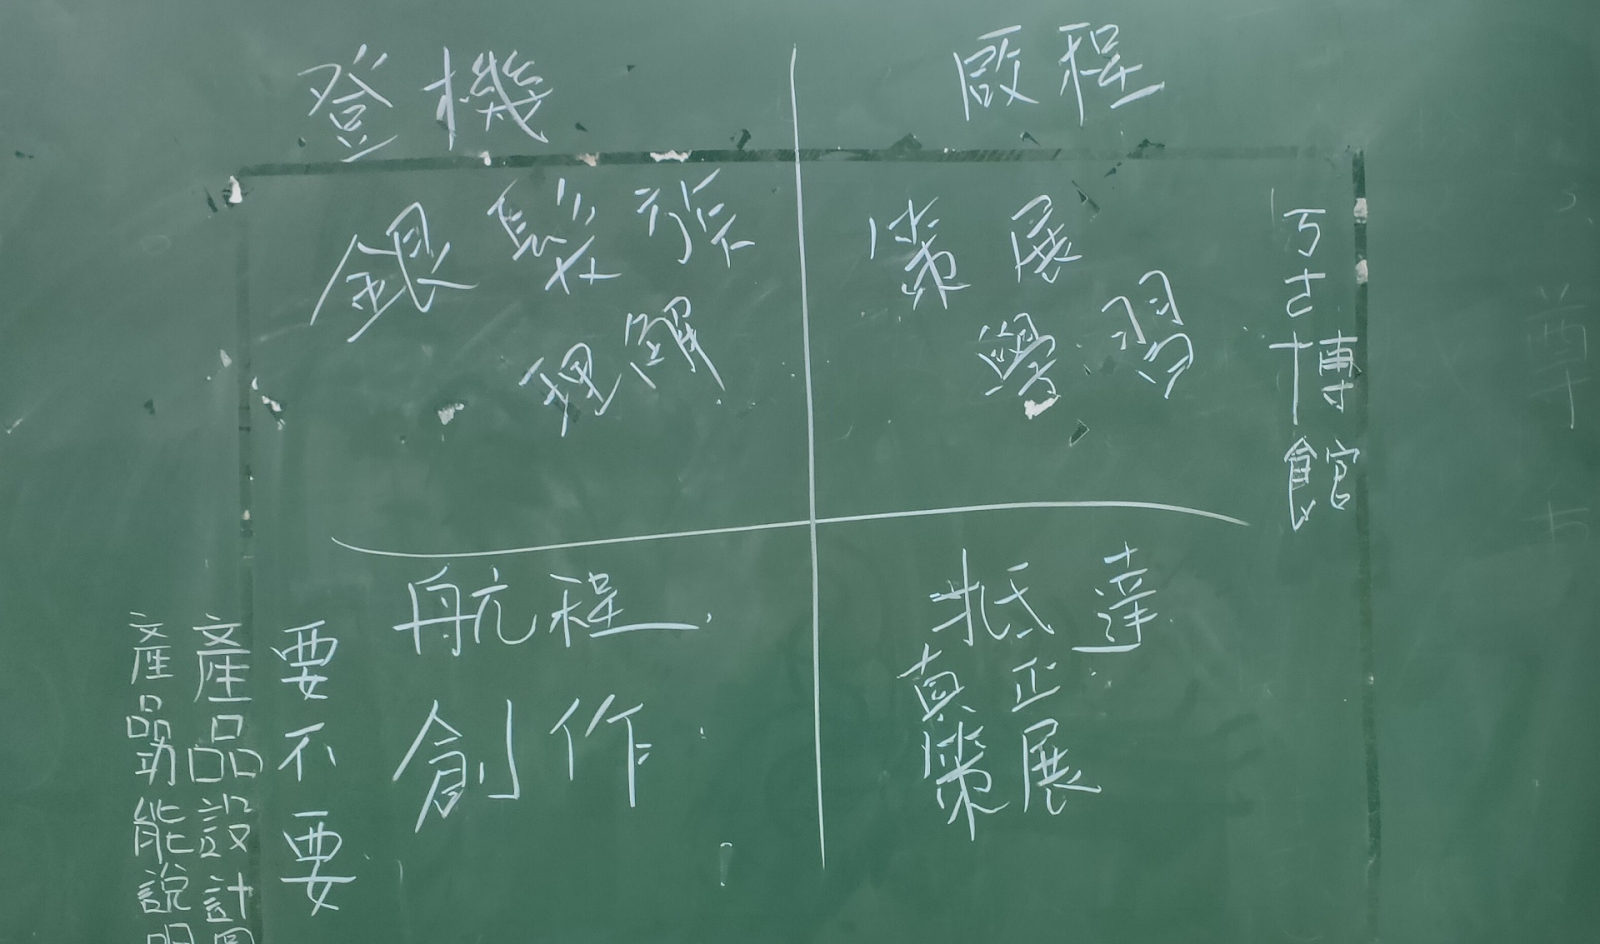 登機
銀髮族
理解
啟程
策展
學習
考古博
館
航程
創作
抵達
真正
策展
要不要
產品設計圖
產品功能說明